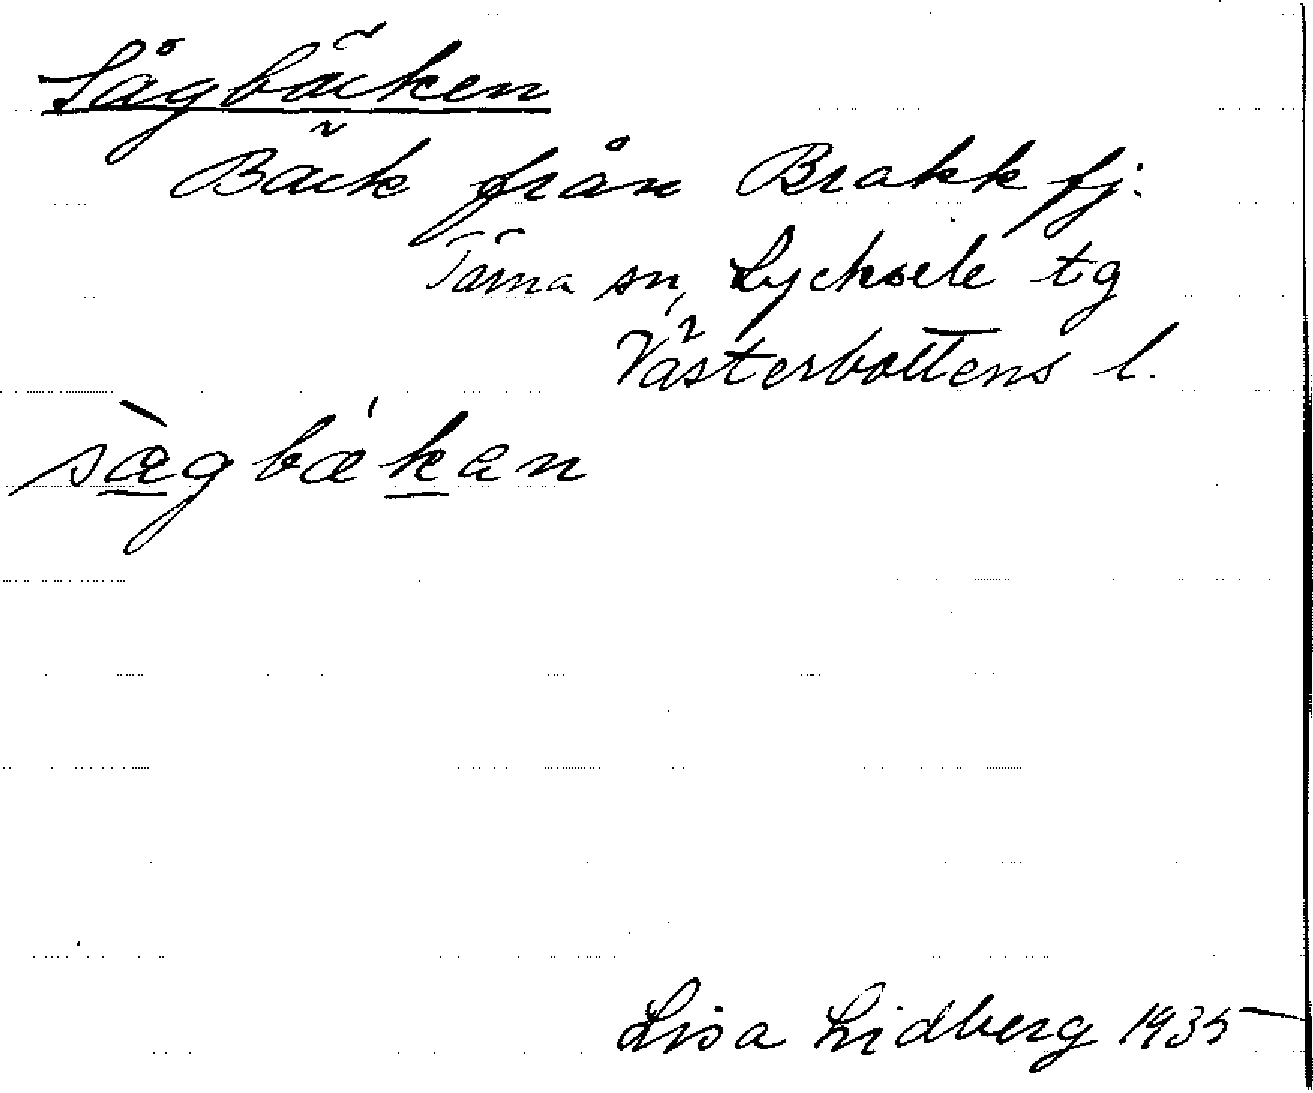 Sågbäcken
Bäck från Brakkfj.
Tärna sn, Lycksele tg
Västerbottens l.
sæ̀gbækan
Lisa Lidberg 1935